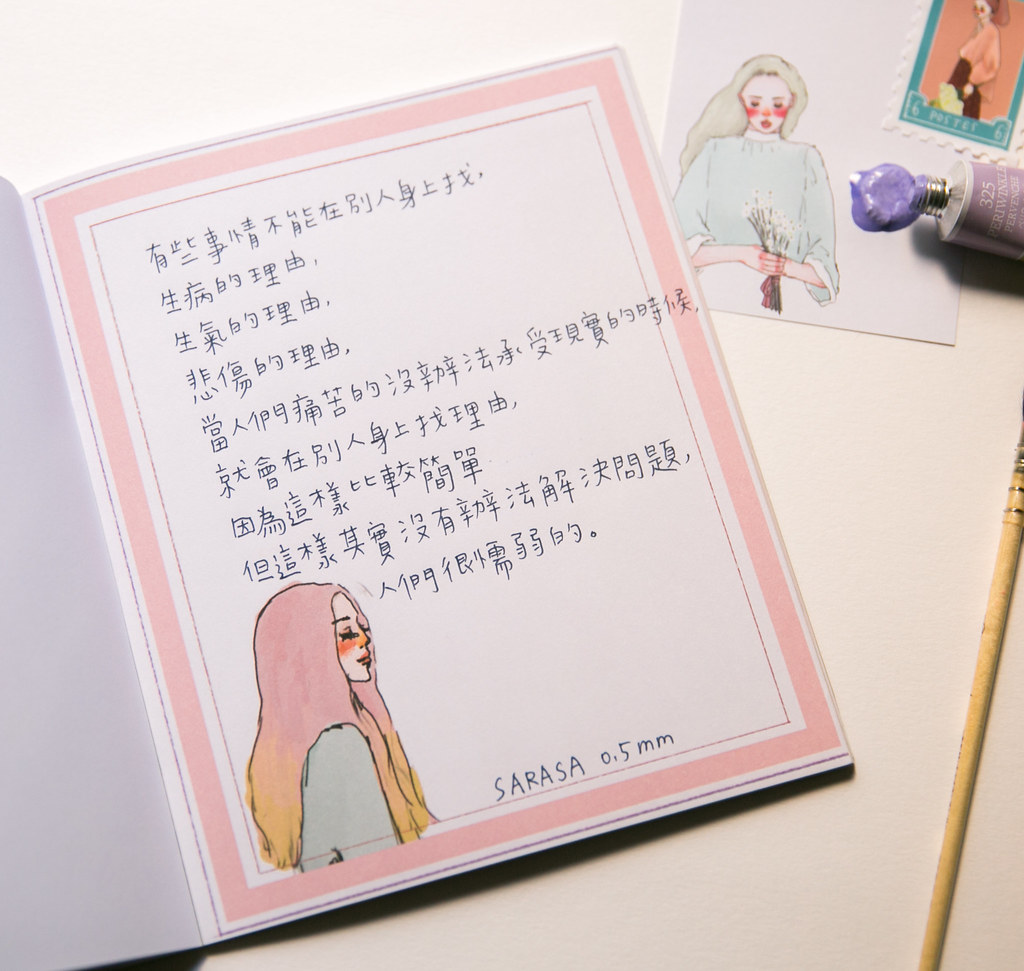 有些事情不能在別人身上找,
生病的理由,
生氣的理由,
悲傷的理由,
當人們痛苦的沒辦法承受現實的時候,
就會在別人身上找理由,
因為這樣比較簡單
但這樣其實沒有辦法解決問題,
人們很懦弱的。
SARASA 0.5mm
6 POSTES 6
325
PERIWINKLE
PERVENCHE